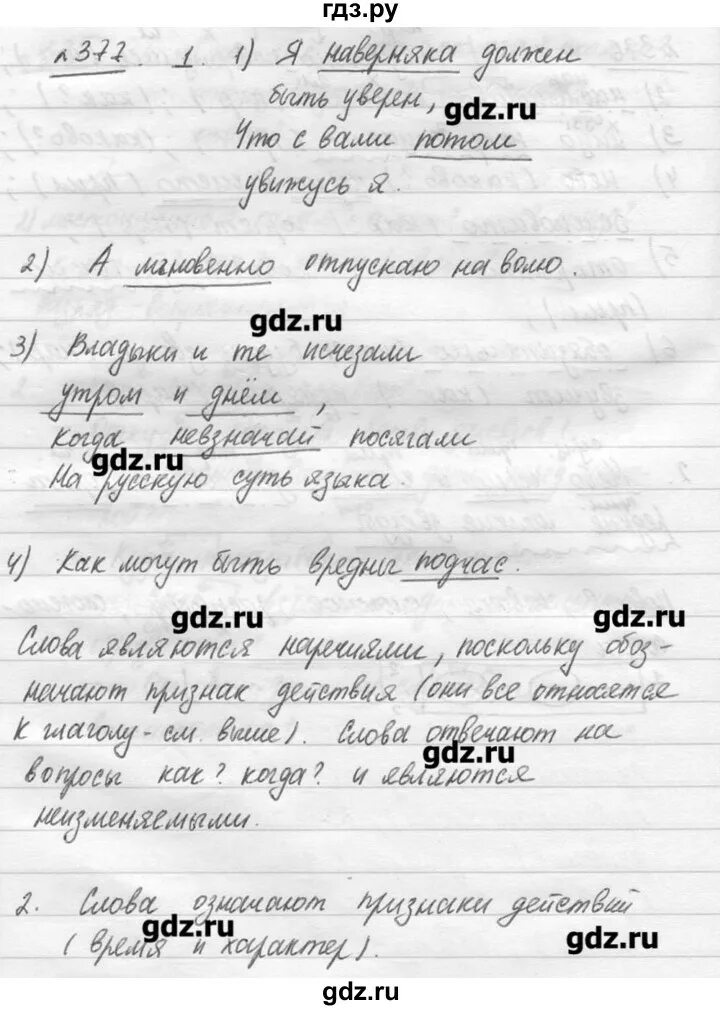 гдз.ру
№377 1. 1) Я наверняка должен
быть уверен,
gdz.ru
Что с вами потом
увижусь я.
2) А мгновенно отпускаю на волю.
gdz.ru
3) Владыки и те исчезали
утром и днём,
Когда невзначай посягали
gdz.ru
На русскую суть языка.
4) Как могут быть вредны подчас.
gdz.ru
gdz.ru
Слова являются наречиями, поскольку обоз-
начают признак действия (они все относятся
к глаголу - см. выше). Слова отвечают на
gdz.ru
вопросы как? когда? и являются
неизменяемыми.
2. Слова означают признаки действий
gdz.ru
(время и характер).
gdz.ru
gdz.ru